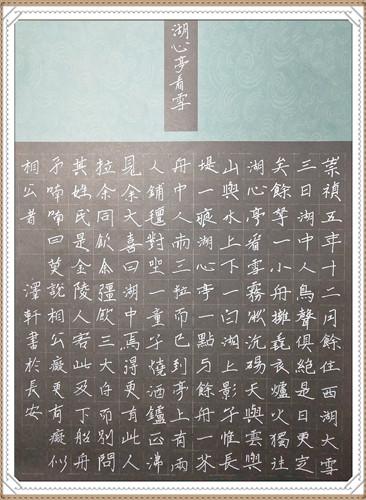 湖心亭看雪
崇禎五年十二月餘住西湖大雪
三日湖中人鳥聲俱絕是日更定
矣餘等一小舟擁毳衣爐火獨往
湖心亭看雪霧凇沆碭天與雲與
山與水上下一白湖上影子惟長
堤一痕湖心亭一點与餘舟一芥
舟中人兩三粒而已到亭上有兩
人鋪氈對坐一童子燒酒鑪正沸
見余大喜曰湖中焉得更有此人
拉余同飲余彊飲三大白而別問
其姓氏是金陵人客此及下船舟
子喃喃曰莫說相公癡更有癡似
相公者 澤軒書於長安